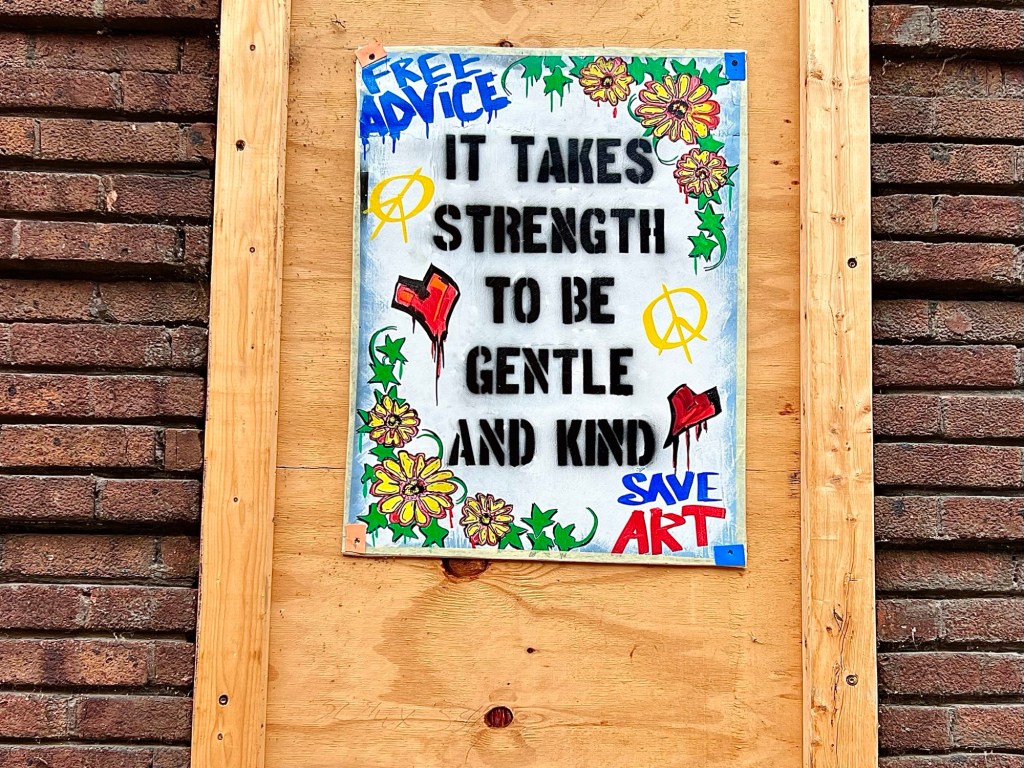 FREE
ADVICE
IT TAKES
STRENGTH
TO BE
GENTLE
AND KIND
SAVE
ART